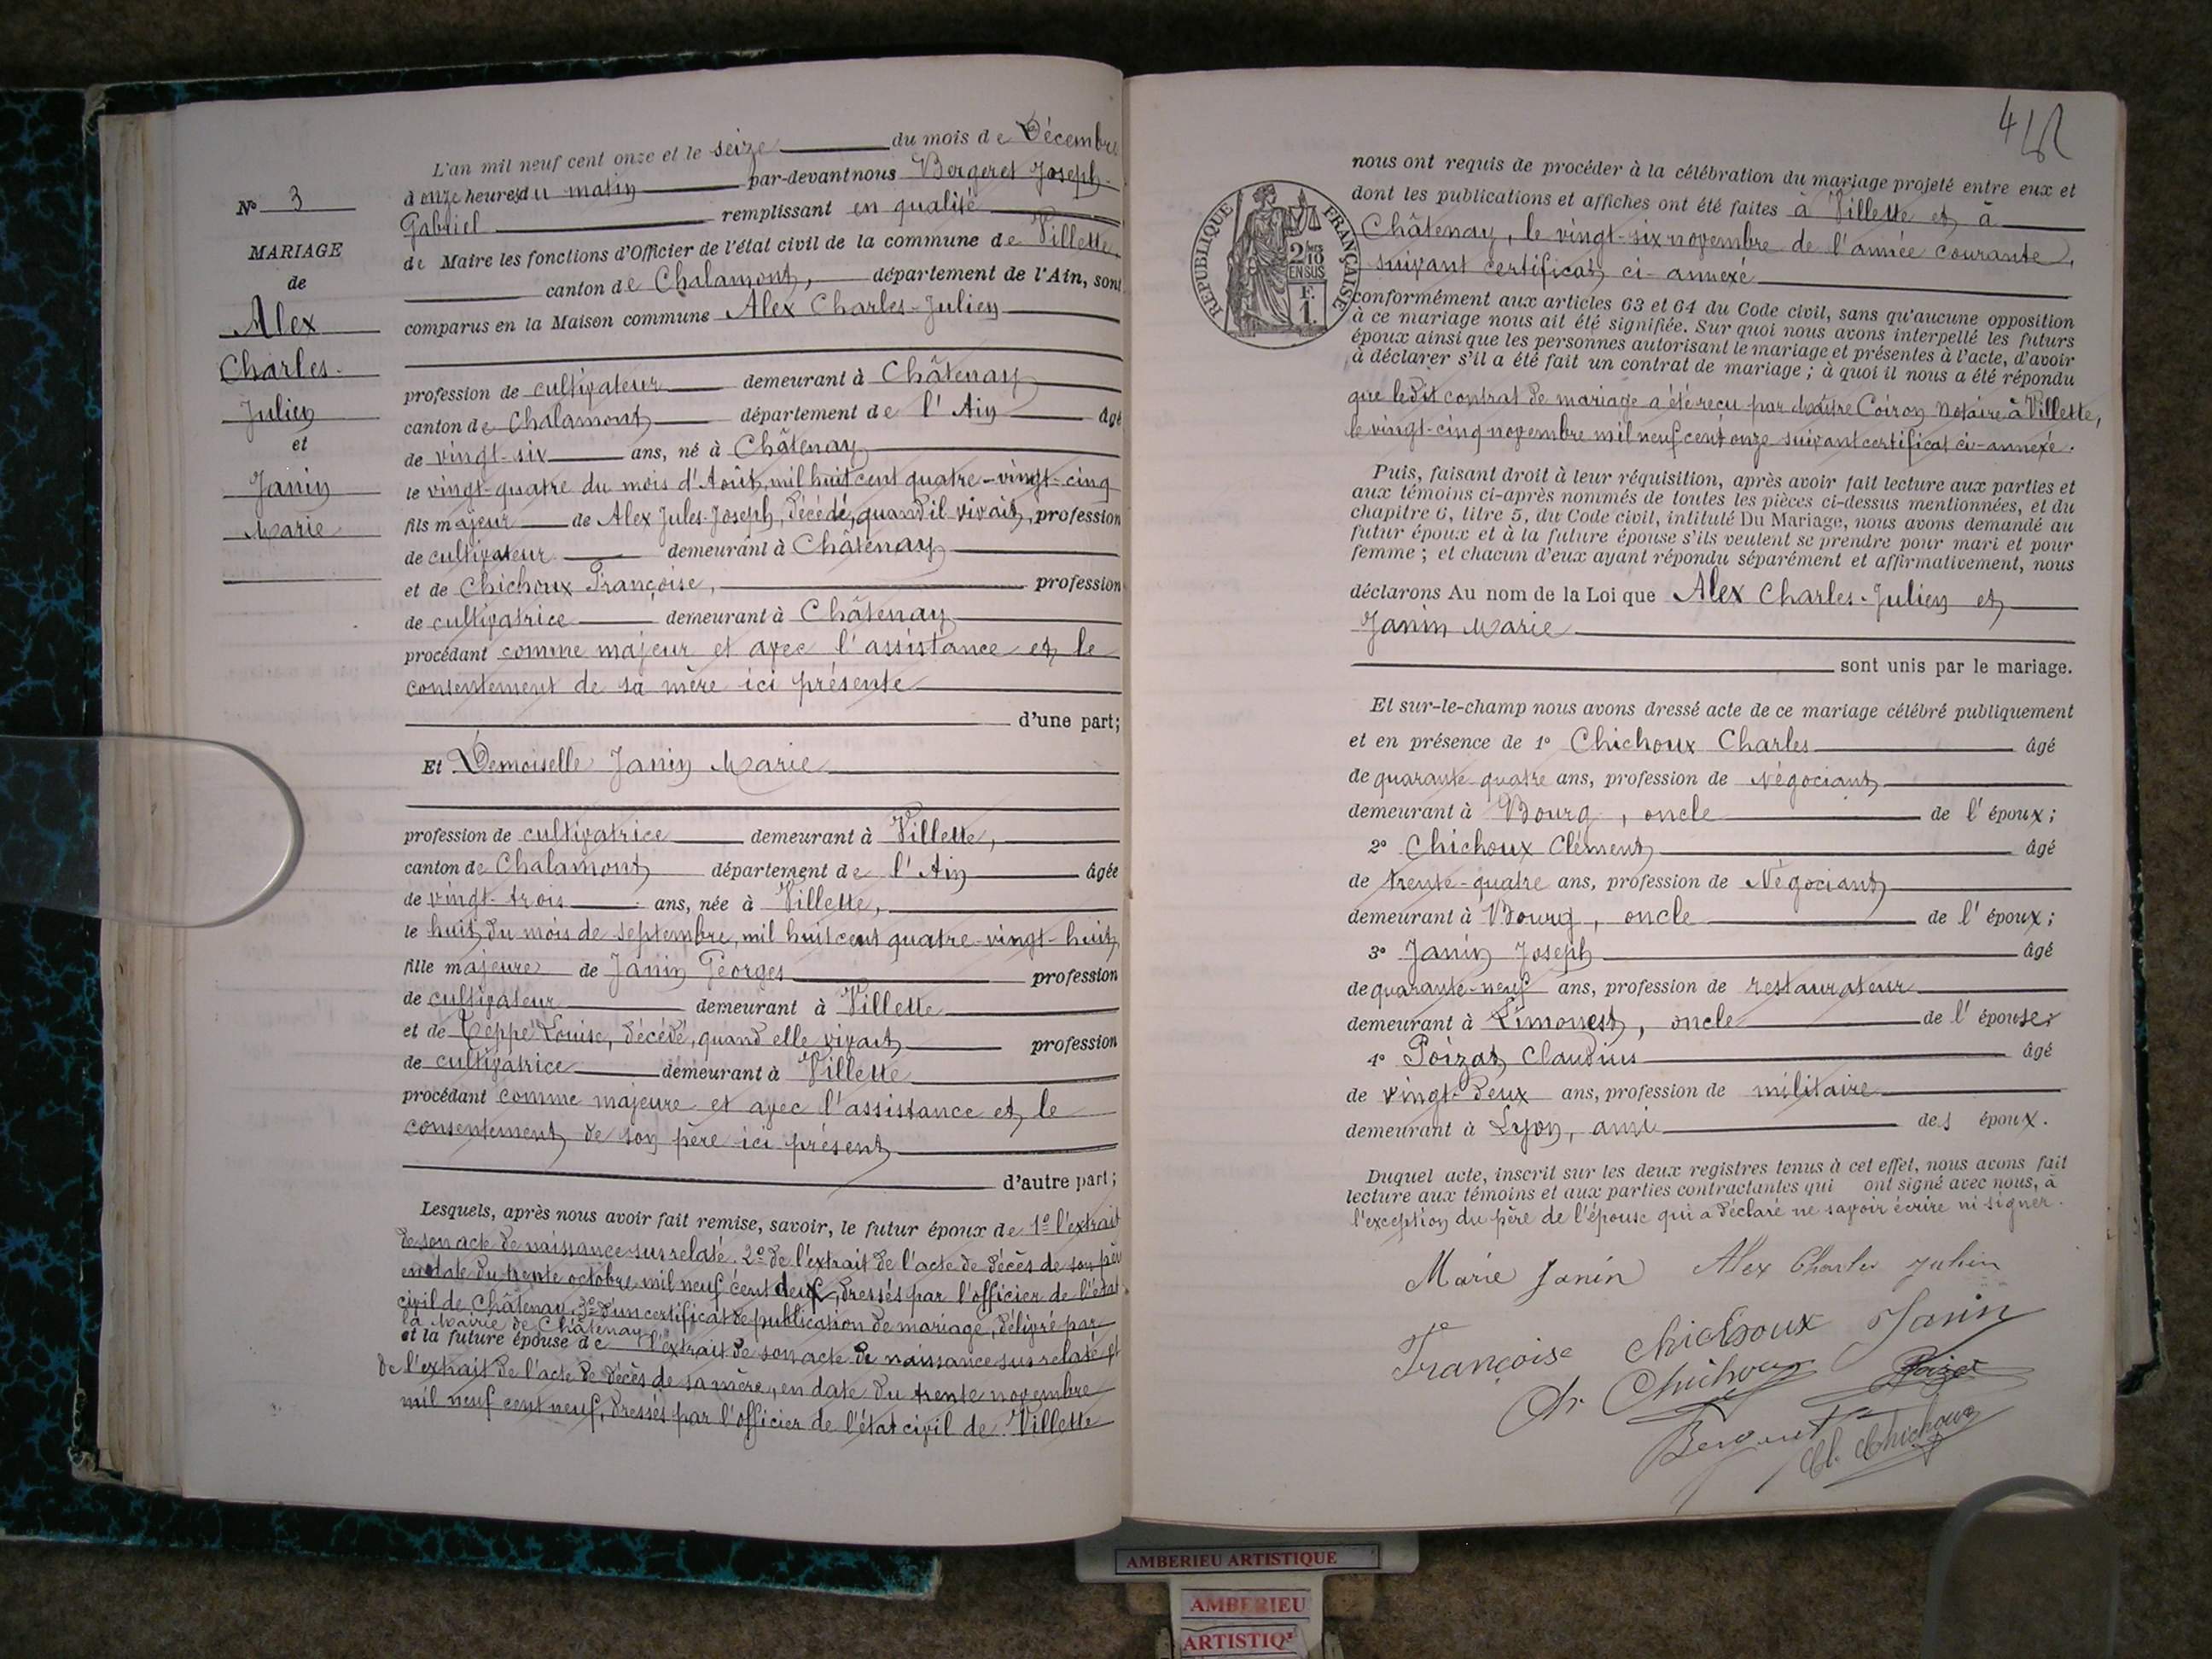 L'an mil neuf cent onze et le seize du mois de Décembre
à onze heures du matin par-devant nous Bergeret Joseph-
Gabriel remplissant en qualité
de Maire les fonctions d'Officier de l'état civil de la commune de Villette,
canton de Chalamont, département de l'Ain, sont
comparus en la Maison commune Alex Charles-Julien
profession de cultivateur demeurant à Châtenay
canton de Chalamont département de l'Ain âgé
de vingt-six ans, né à Châtenay
le vingt-quatre du mois d'Août, mil huit cent quatre-vingt-cinq
fils majeur de Alex Jules-Joseph, décédé, quand il vivait, profession
de cultivateur demeurant à Châtenay
et de Chichoux Françoise, profession
de cultivatrice demeurant à Châtenay
procédant comme majeur et avec l'assistance et le
consentement de sa mère ici présente
d'une part;
Et Demoiselle Janin Marie
profession de cultivatrice demeurant à Villette,
canton de Chalamont département de l'Ain âgée
de vingt-trois ans, née à Villette,
le huit du mois de septembre, mil huit cent quatre-vingt-huit,
fille majeure de Janin Georges profession
de cultivateur demeurant à Villette
et de Teppe Louise, décédé, quand elle vivait profession
de cultivatrice demeurant à Villette
procédant comme majeure et avec l'assistance et le
consentement de son père ici présent
d'autre part;
Lesquels, après nous avoir fait remise, savoir, le futur époux de 1º l'extrait
de son acte de naissance susrelaté. 2º de l'extrait de l'acte de décès de son père
en date du trente octobre mil neuf cent deux, dressés par l'officier de l'état
civil de Châtenay. 3º d'un certificat de publication de mariage, délivré par
la Mairie de Châtenay
et la future épouse de l'extrait de son acte de naissance susrelaté et
de l'extrait de l'acte de décès de sa mère, en date du trente novembre
mil neuf cent neuf, dressés par l'officier de l'état civil de Villette
Nº 3
MARIAGE
de
Alex
Charles-
Julien
et
Janin
Marie
nous ont requis de procéder à la célébration du mariage projeté entre eux et
dont les publications et affiches ont été faites à Villette et à
Châtenay, le vingt-six novembre de l'année courante,
suivant certificat ci-annexé
RÉPUBLIQUE FRANÇAISE
2/10
EN SUS
F.
1.
conformément aux articles 63 et 64 du Code civil, sans qu'aucune opposition
à ce mariage nous ait été signifiée. Sur quoi nous avons interpellé les futurs
époux ainsi que les personnes autorisant le mariage et présentes à l'acte, d'avoir
à déclarer s'il a été fait un contrat de mariage ; à quoi il nous a été répondu
que ledit contrat de mariage a été reçu par Maître Coiron Notaire à Villette,
le vingt-cinq novembre mil neuf cent onze suivant certificat ci-annexé.
Puis, faisant droit à leur réquisition, après avoir fait lecture aux parties et
aux témoins ci-après nommés de toutes les pièces ci-dessus mentionnées, et du
chapitre 6, titre 5, du Code civil, intitulé Du Mariage, nous avons demandé au
futur époux et à la future épouse s'ils veulent se prendre pour mari et pour
femme ; et chacun d'eux ayant répondu séparément et affirmativement, nous
déclarons Au nom de la Loi que Alex Charles-Julien et
Janin Marie
sont unis par le mariage.
Et sur-le-champ nous avons dressé acte de ce mariage célébré publiquement
et en présence de 1º Chichoux Charles âgé
de quarante-quatre ans, profession de Négociant
demeurant à Bourg, oncle de l'époux;
2º Chichoux Clément âgé
de trente-quatre ans, profession de Négociant
demeurant à Bourg, oncle de l'époux;
3º Janin Joseph âgé
de quarante-neuf ans, profession de restaurateur
demeurant à Limonest, oncle de l'épouse;
4º Poizat Claudius âgé
de vingt-deux ans, profession de militaire
demeurant à Lyon, ami des époux.
Duquel acte, inscrit sur les deux registres tenus à cet effet, nous avons fait
lecture aux témoins et aux parties contractantes qui ont signé avec nous, à
l'exception du père de l'épouse qui a déclaré ne savoir écrire ni signer.
Marie Janin Alex Charles Julien
Françoise Chichoux Janin
Ch Chichoux Poizat
Bergeret Cl. Chichoux
AMBERIEU ARTISTIQUE
AMBERIEU
ARTISTIQ